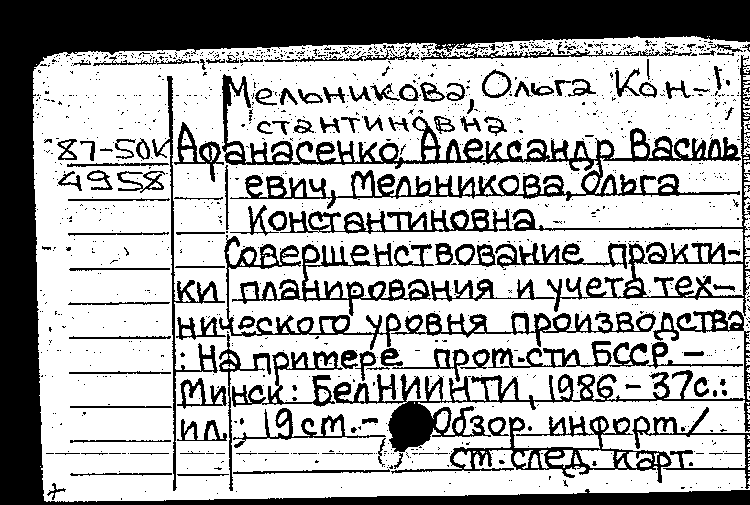 Мельникова, Ольга Кон-
стантиновна.
87-50К Афанасенко, Александр Василь
4958 евич, Мельникова, Ольга
Константиновна.
Совершенствование практи-
ки планирования и учета тех-
нического уровня производства
: На примере пром-сти БССР. –
Минск: БелНИИНТИ, 1986. – 37с.:
ил.; 19 см. – Обзор. информ./
см. след. карт.